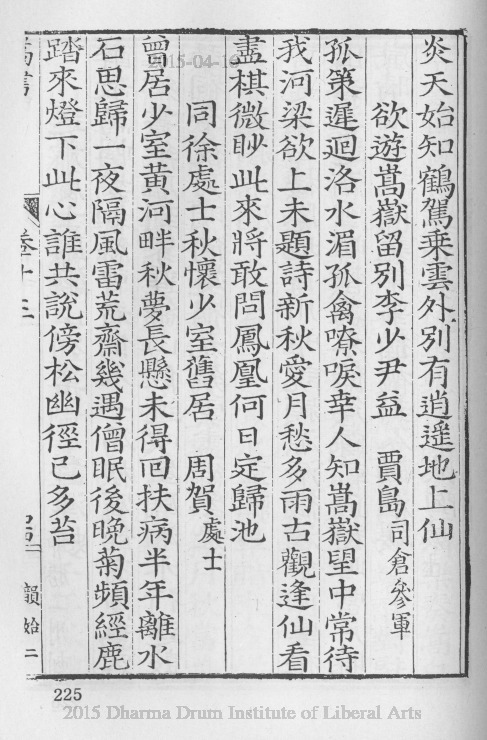 炎天始知鶴駕乗雲外別有逍遥地上仙
欲遊嵩嶽留別李少尹益 賈島司倉參軍
孤策遲迴洛水湄孤禽嘹唳幸人知嵩嶽望中常待
我河梁欲上未題詩新秋愛月愁多雨古觀逢仙看
盡棋微眇此來將敢問鳳凰何日定歸池
同徐處士秋懷少室舊居 周賀處士
曾居少室黃河畔秋夢長懸未得回扶病半年離水
石思歸一夜隔風雷荒齋幾遇僧眠後晚菊頻經鹿
踏來燈下此心誰共說傍松幽徑已多苔
卷十三
韻始二
2015-04-16
225
2015 Dharma Drum Institute of Liberal Arts